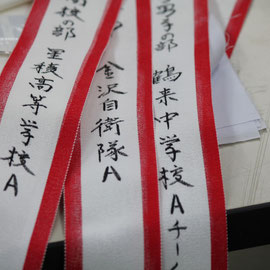 取手の部
鶴来中学校Aチー
金沢自衛隊A
高校の部
星稜高等学校A